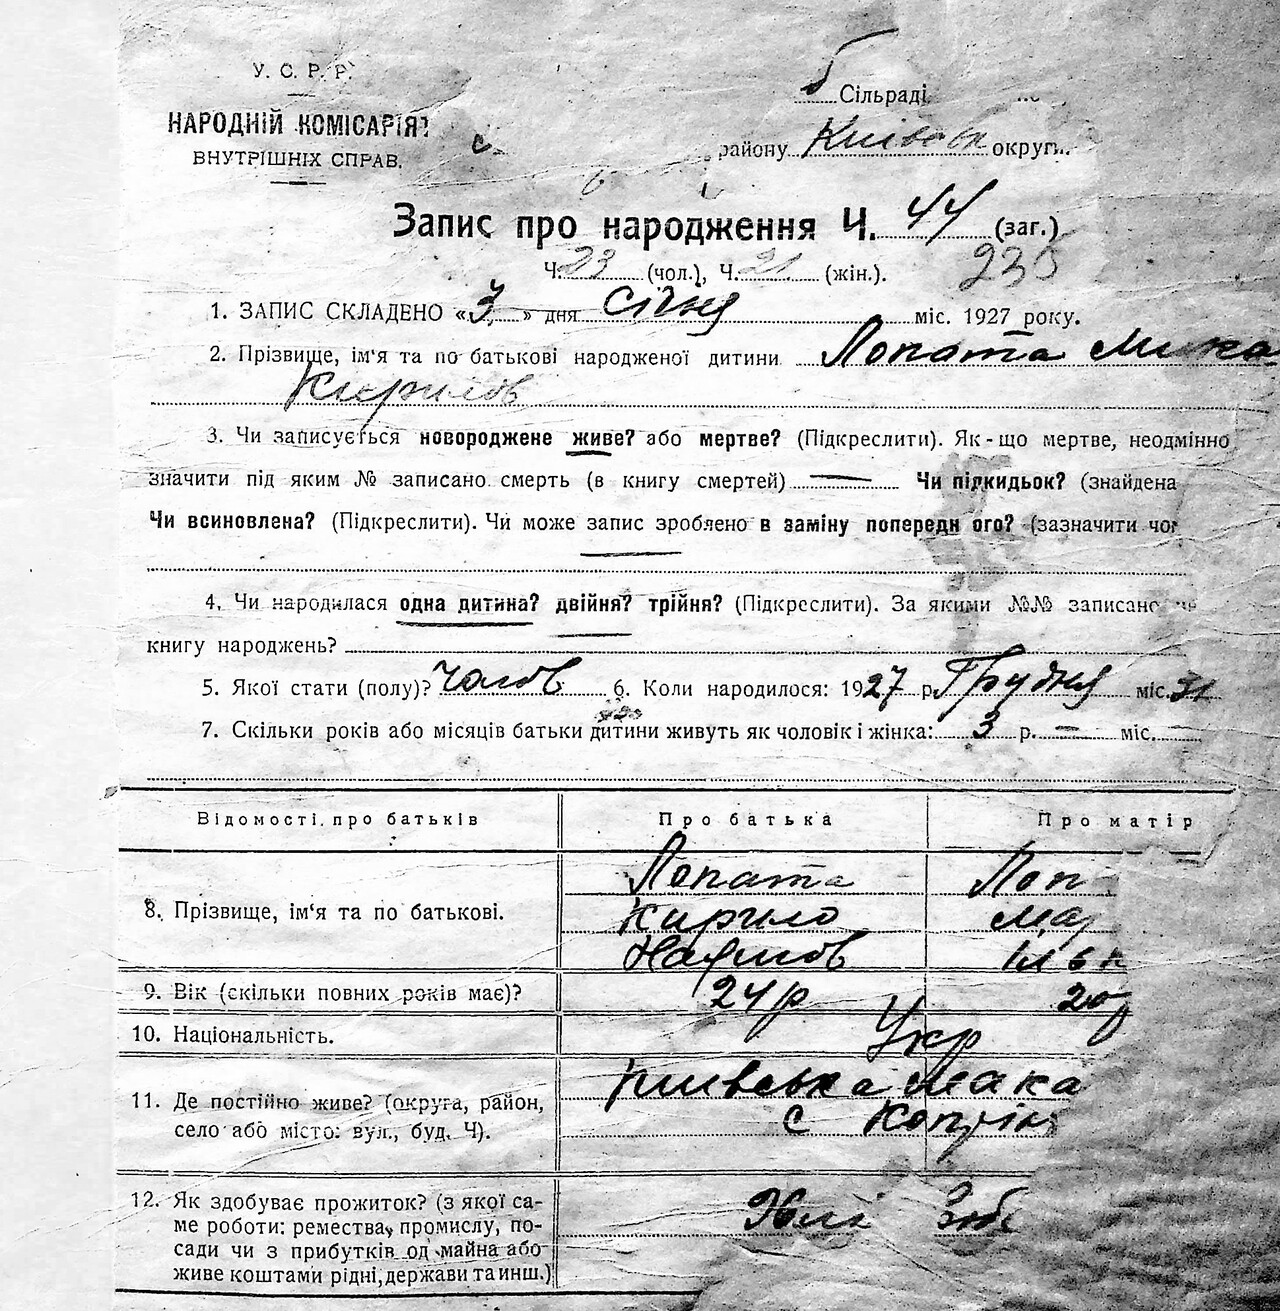 У. С. Р. Р.
НАРОДНІЙ КОМІСАРІЯТ
ВНУТРІШНІХ СПРАВ.
Сільраді
району Київськ округи
Запис про народження Ч. 44 (заг.)
Ч. 23 (чол.), Ч. 21 (жін.). 235
1. ЗАПИС СКЛАДЕНО « 3 » дня січня міс. 1927 року.
2. Прізвище, ім'я та по батькові народженої дитини Лопата Мика
Кирилов
3. Чи записується новороджене живе? або мертве? (Підкреслити). Як-що мертве, неодмінно
значити під яким № записано смерть (в книгу смертей) — Чи підкидьок? (знайдена
Чи всиновлена? (Підкреслити). Чи може запис зроблено в заміну попередн ого? (зазначити чог
4. Чи народилася одна дитина? двійня? трійня? (Підкреслити). За якими №№ записано
книгу народжень?
5. Якої стати (полу)? Чолов 6. Коли народилося: 1927 р. Грудня міс. 31
7. Скільки років або місяців батьки дитини живуть як чоловік і жінка: 3 р. — міс.
Відомості про батьків Про батька Про матір
Лопата Лоп
8. Прізвище, ім'я та по батькові. Кирило Мар
Ільк
9. Вік (скільки повних років має)? 24 р 20 р
10. Національність. Укр
11. Де постійно живе? (округа, район, Мака
село або місто: вул., буд. Ч). с
12. Як здобуває прожиток? (з якої са-
ме роботи: ремества, промислу, по-
сади чи з прибутків од майна або
живе коштами рідні, держави та инш.)